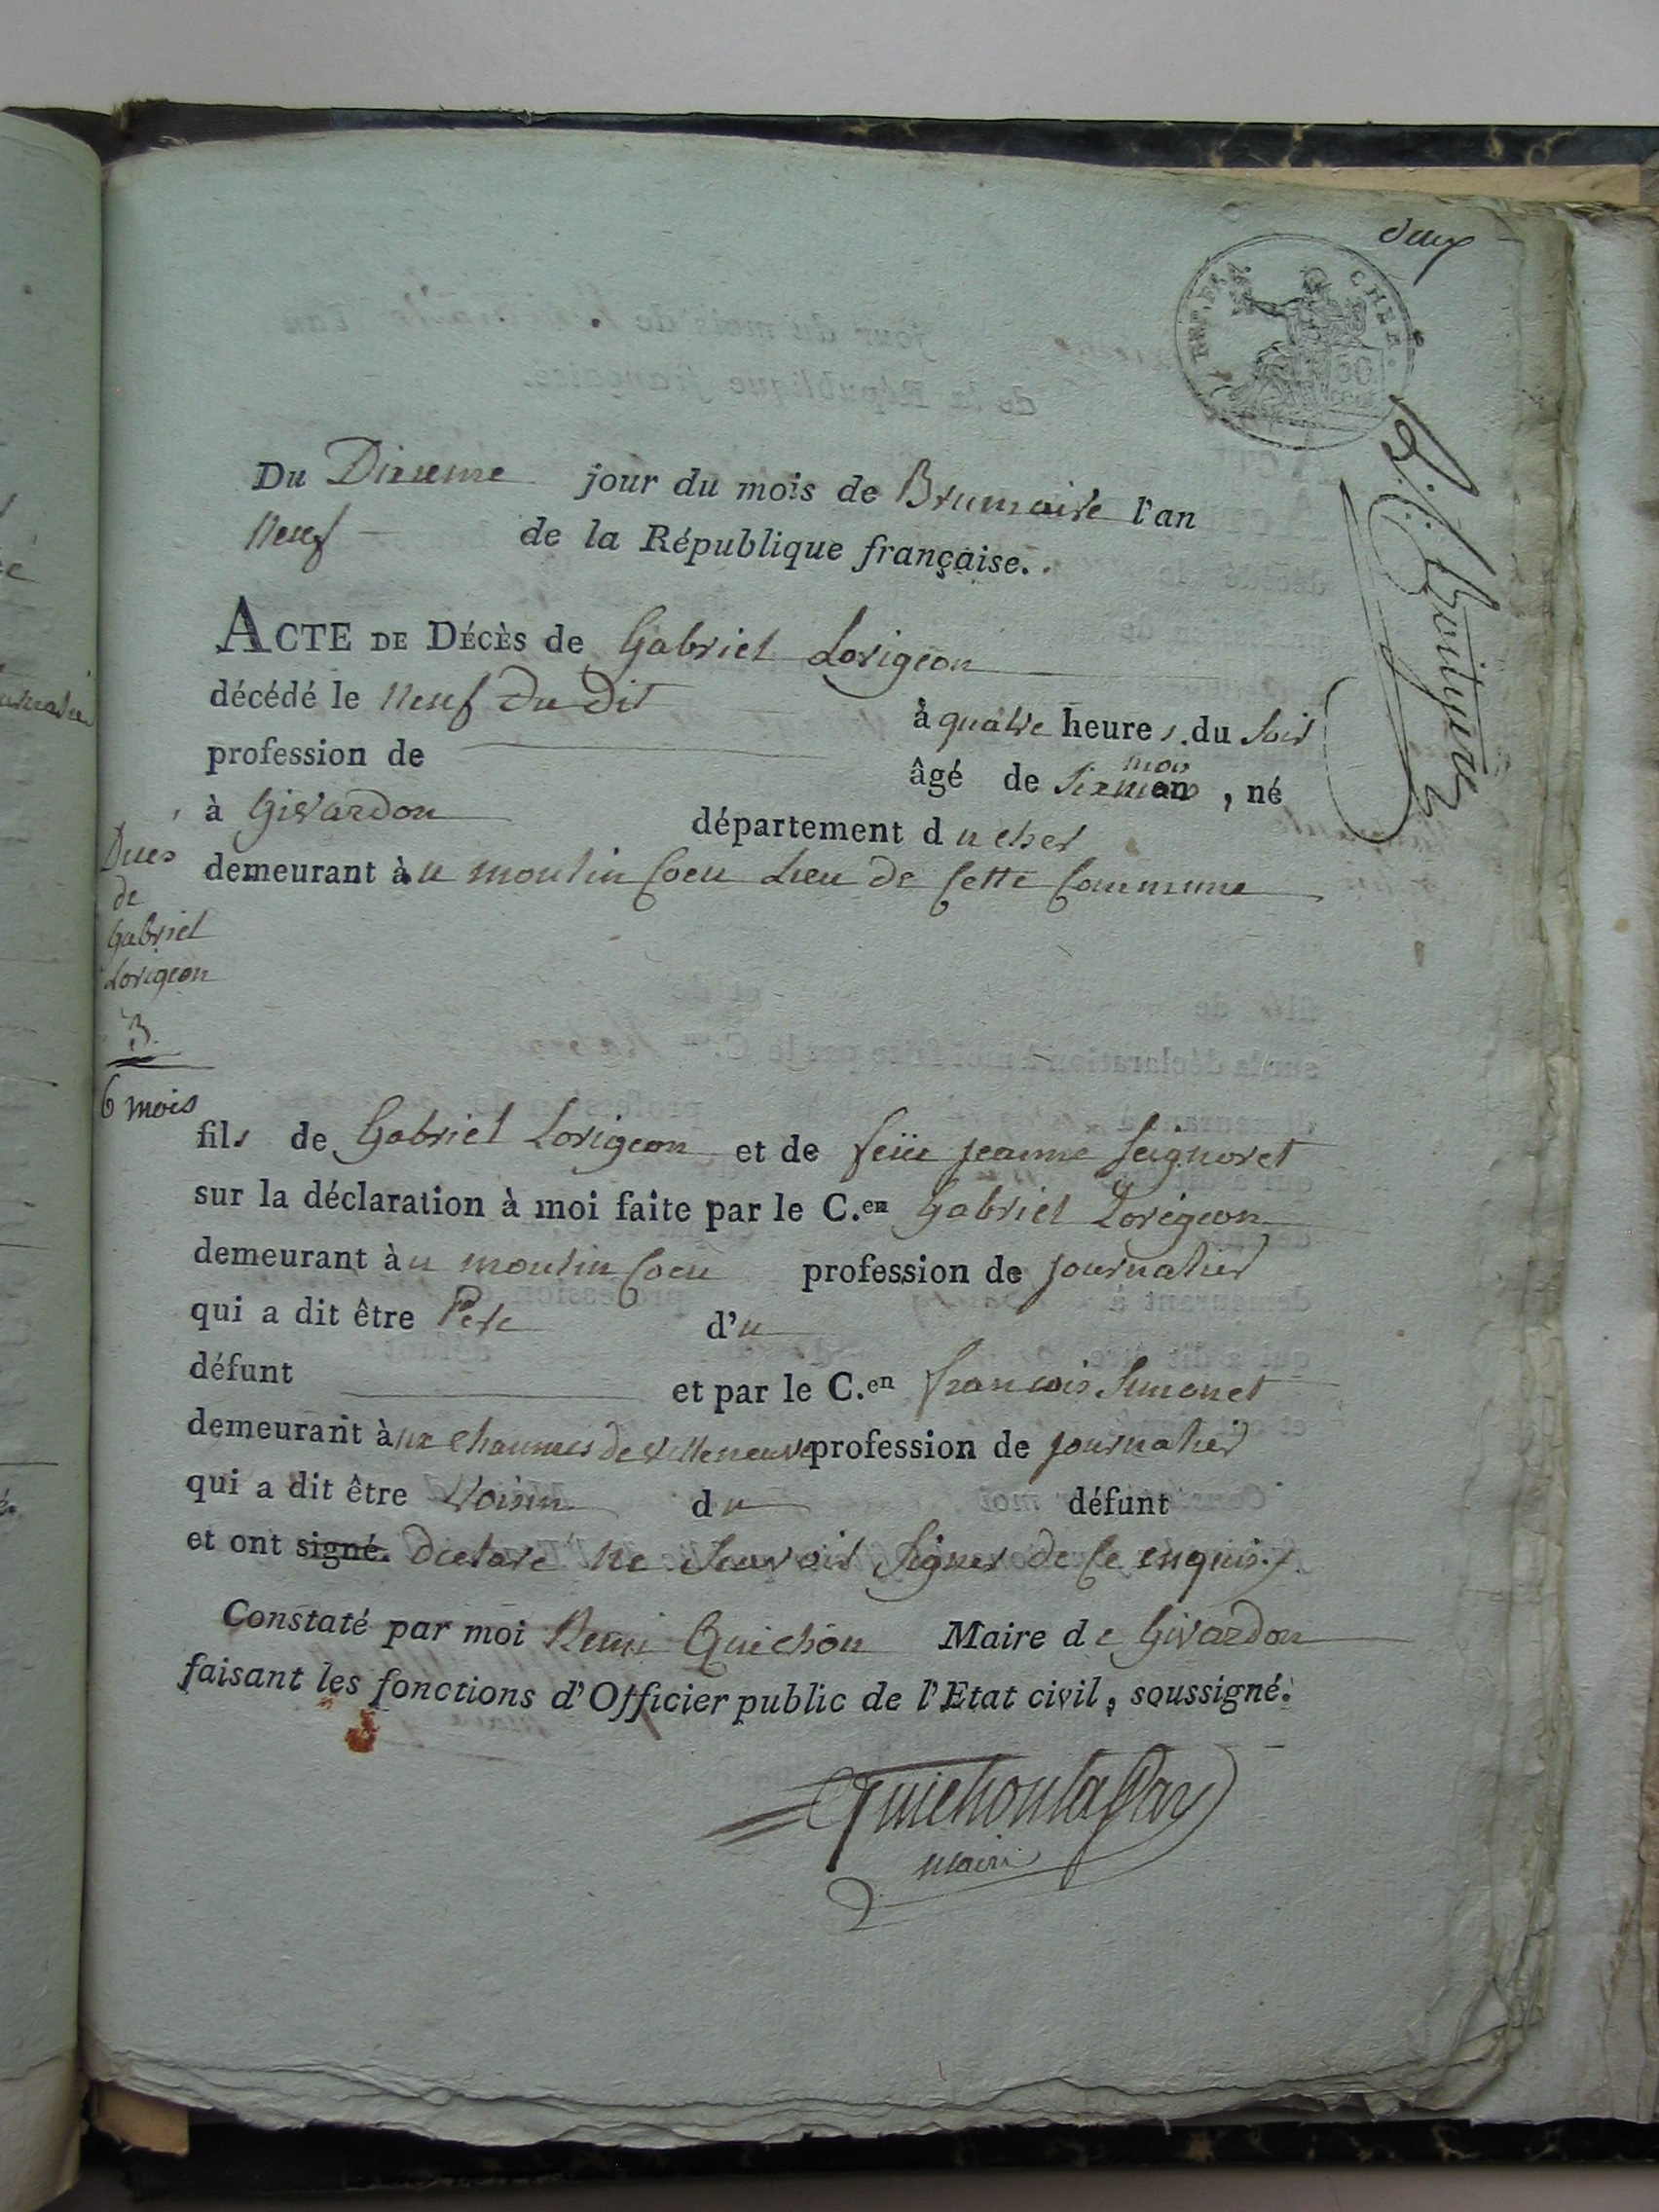 deux
REP. FRA. CHER.
50 cent
Du Dixieme jour du mois de Brumaire l'an
Neuf de la République française.
ACTE DE DÉCÈS de Gabriel Lorigeon
décédé le Neuf du dit à quatre heures. du Soir
profession de âgé de Six mois, né
à Givardon département du cher
demeurant àu moulin Coeu Lieu de Cette Commune
Duces
de
Gabriel
Lorigeon
3.
6 mois
fils de Gabriel Lorigeon et de feüe jeanne Seignoret
sur la déclaration à moi faite par le C.en Gabriel Lorigeon
demeurant àu moulin Coeu profession de journalier
qui a dit être Pere d'u
défunt et par le C.en francois Simonet
demeurant àux chaumes de villeneuve profession de journalier
qui a dit être Voisin du défunt
et ont signé. declaré ne Scavoir Signer de Ce enquis.
Constaté par moi Remi Guichon Maire de Givardon
faisant les fonctions d'Officier public de l'Etat civil, soussigné.
maire